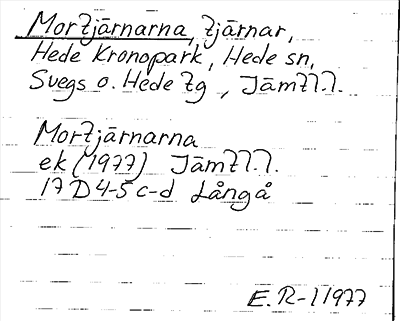 Mortjärnarna, tjärnar,
Hede Kronopark, Hede sn,
Svegs o. Hede tg, Jämtl.l.
Mortjärnarna
ek (1977) Jämtl.l.
17D4-5c-d Långå
E. R-l 1977